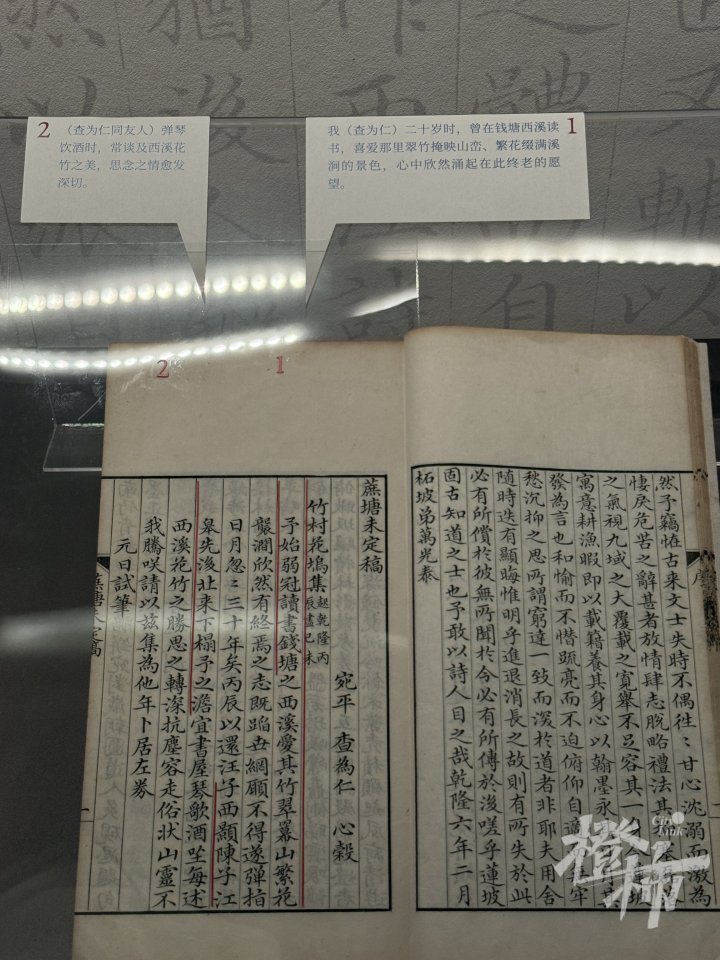 2
（查为仁同友人）弹琴
饮酒时，常谈及西溪花
竹之美，思念之情愈发
深切。
1
我（查为仁）二十岁时，曾在钱塘西溪读
书，喜爱那里翠竹掩映山峦、繁花缀满溪
涧的景色，心中欣然涌起在此终老的愿
望。
2
1
然予竊恠古来文士失時不偶往〻甘心沈溺而激為
悽戾危苦之辭甚者放情肆志脫略禮法其
之氣視九域之大覆載之寬舉不足容其一身
寓意耕漁暇即以載籍養其身心以翰墨永
發為言也和愉而不惉疏亮而不迫俯仰自適
愁沉抑之思所謂窮達一致而深於道者非耶夫用舍
隨時迭有顯晦惟明乎進退消長之故則有所失於此
必有所償於彼無所聞於今必有所傳於後嗟乎蓮坡
固古知道之士也予敢以詩人目之哉乾隆六年二月
柘坡弟萬光泰
蔗塘未定稿
宛平 查為仁 心穀
竹村花塢集 起乾隆丙辰盡己未
予始弱冠讀書錢塘之西溪愛其竹翠羃山繁花
襲澗欣然有終焉之志既蹈世網願不得遂彈指
日月忽〻三十年矣丙辰以還汪子西顥陳子江
皋先後北来下榻予之澹宜書屋琴歌酒坐每述
西溪花竹之勝思之轉深抗塵容走俗狀山靈不
我騰咲請以茲集為他年卜居左券
元日試筆
City Link
橙柿